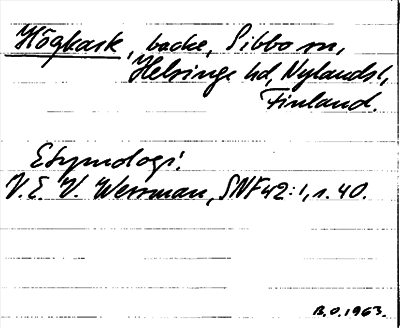 Högkask, backe, Sibbo sn,
Helsinge hd, Nylands l,
Finland.
Etymologi:
V.E.V. Wessman, SNF 42:1, s. 40.
B.O. 1963.